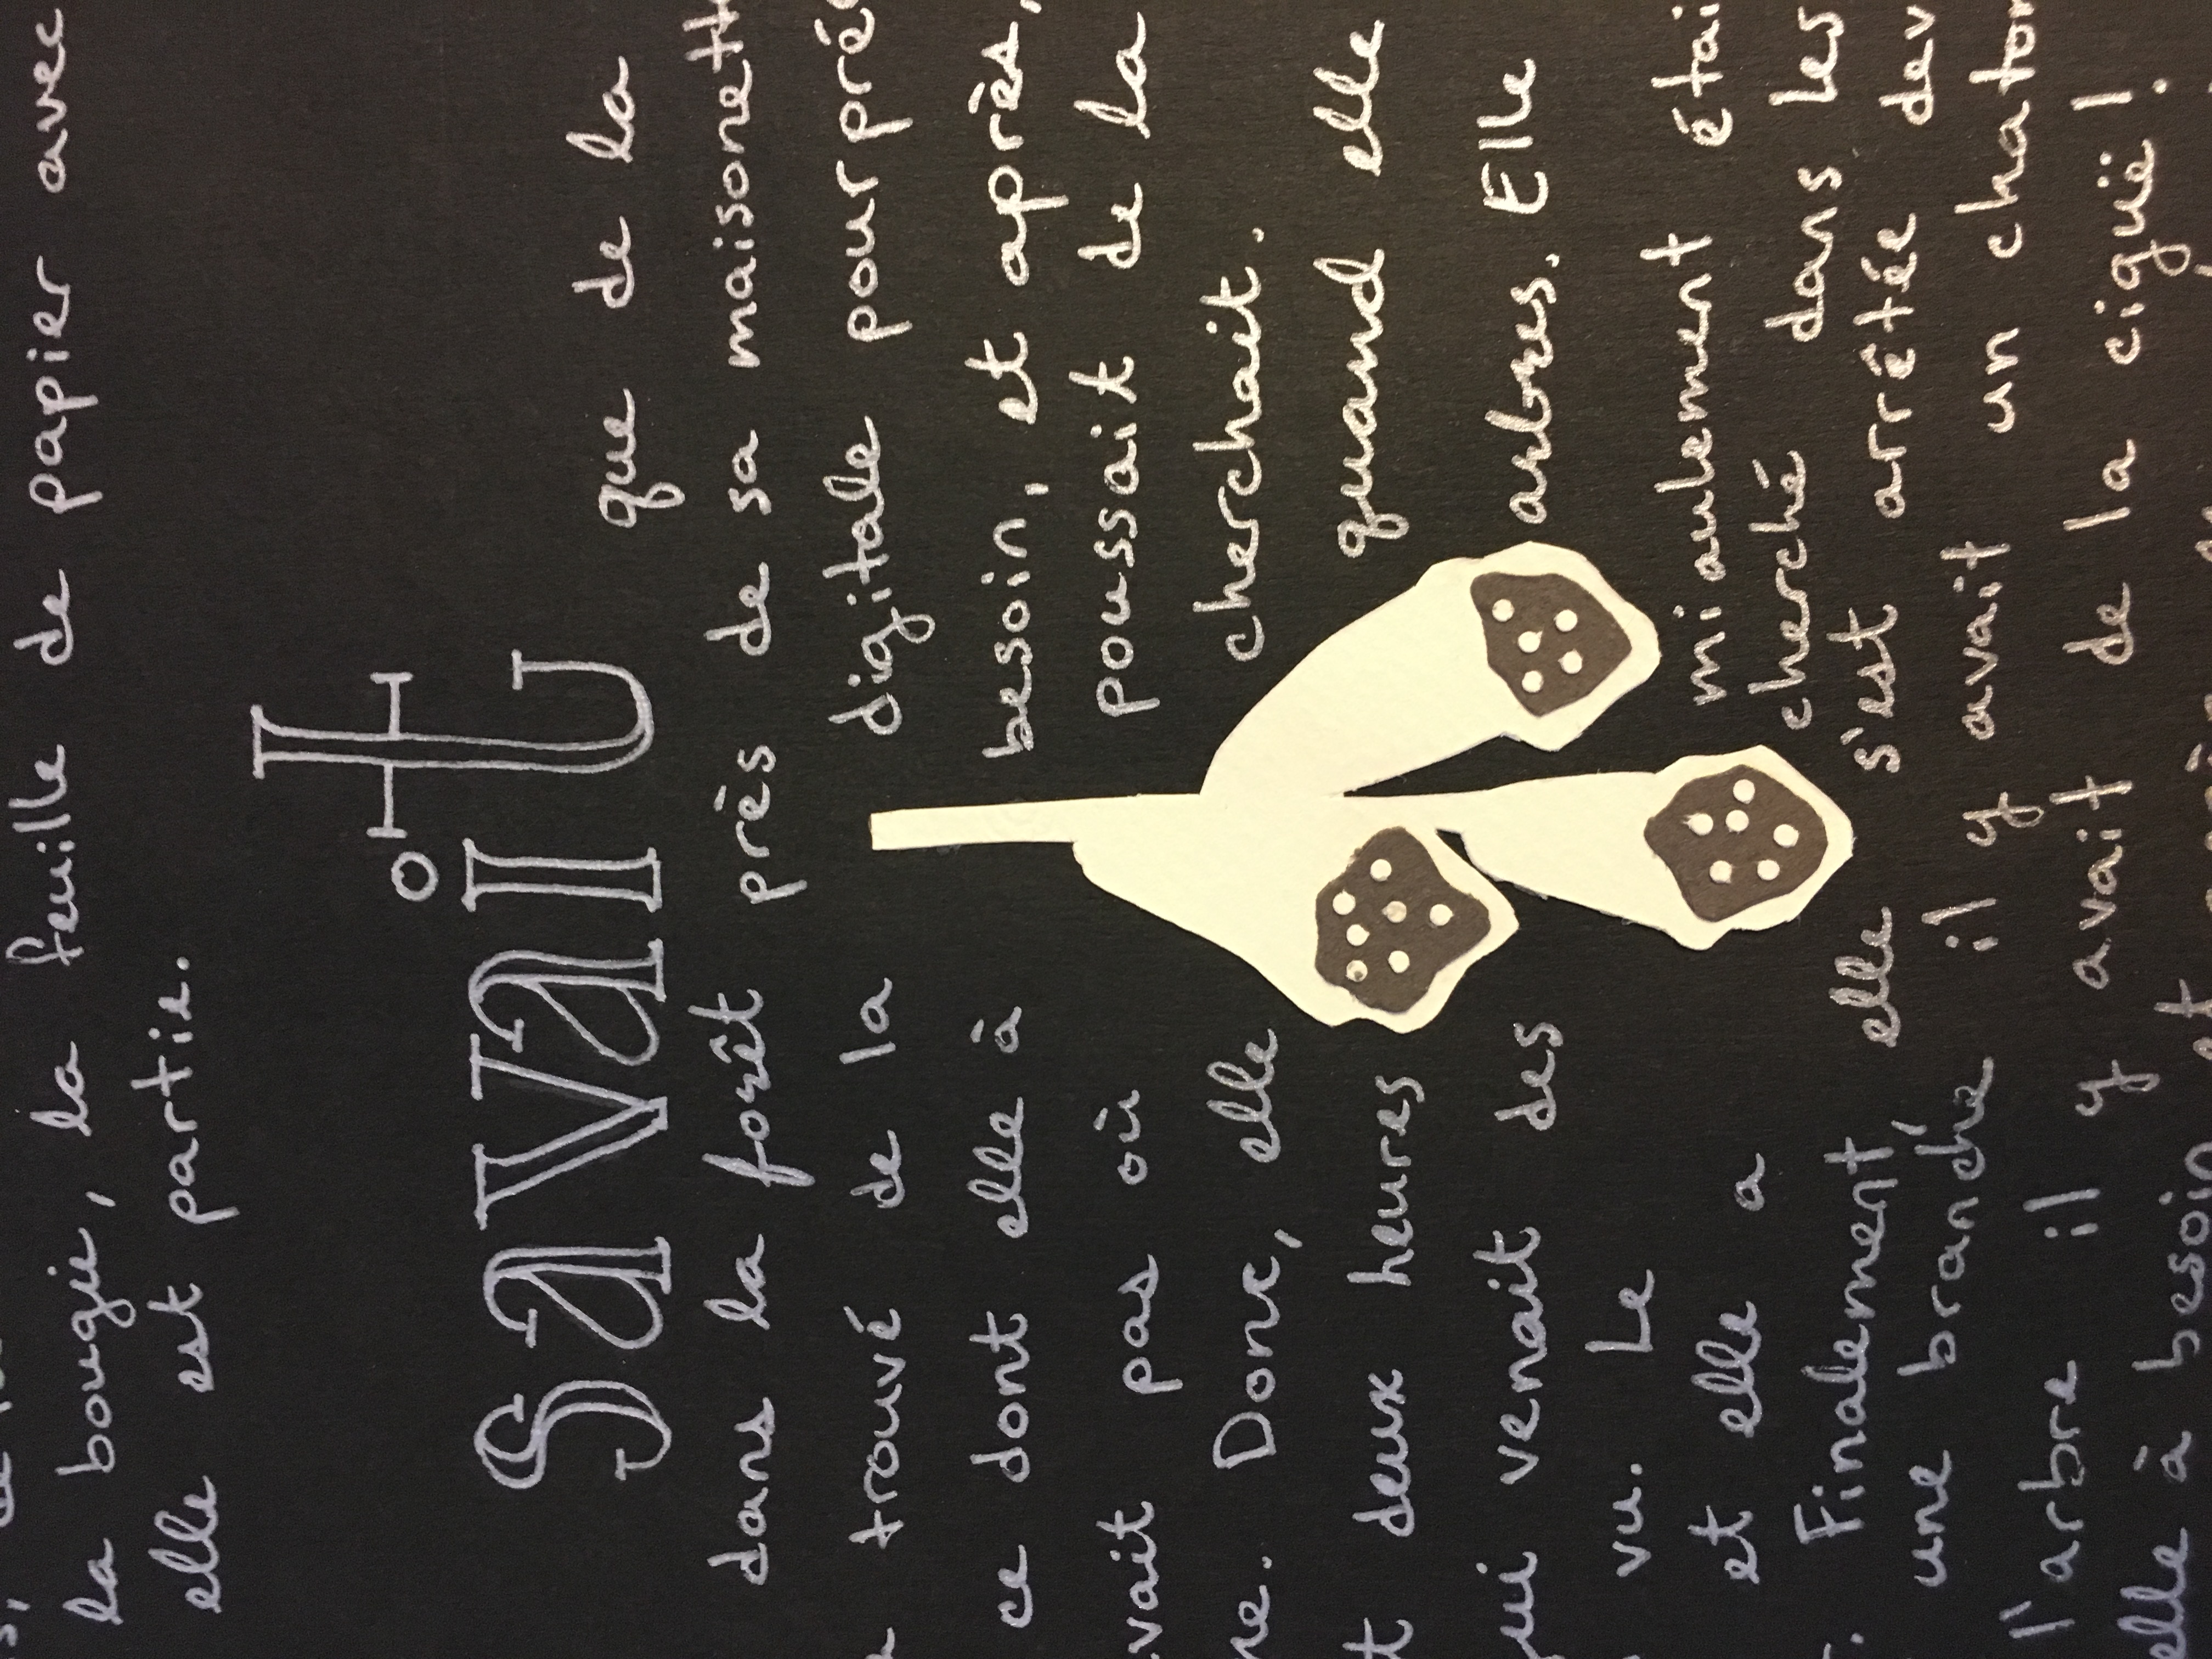 la bougie, la feuille de papier avec
elle est partie.
savait que de la
dans la forêt près de sa maisonette
trouvé de la digitale pourpré
ce dont elle à besoin, et après,
vait pas où poussait de la
ne. Donc, elle cherchait.
t deux heures quand elle
qui venait des arbres. Elle
vu. Le miaulement étai
et elle a cherché dans les
. Finalement, elle s'est arrêtée dev
une branche il y avait un chaton
l'arbre il y avait de la ciguë!
elle à besoin et après